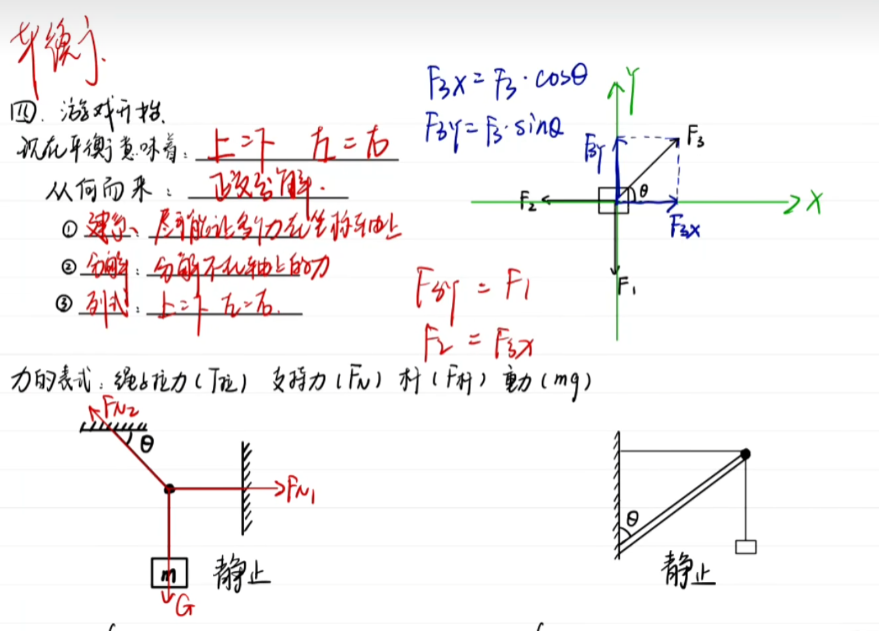 平衡
四. 游戏开始
现在平衡意味着: 上=下 左=右
从何而来: 正交分解.
① 建系: 尽可能让多力在坐标轴上
② 分解: 分解不在轴上的力
③ 列式: 上=下 左=右.
F3X = F3·cosθ
F3Y = F3·sinθ
Y
F3Y
F3
F2
θ
X
F3X
F1
F3Y = F1
F2 = F3X
力的表式: 绳子拉力(T拉) 支持力(FN) 杆(F杆) 重力(mg)
FN2
θ
FN1
m
静止
G
θ
静止